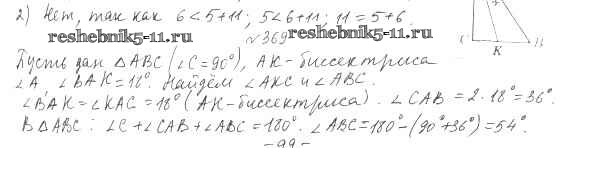 2) Нет, так как 6 < 5 + 11; 5 < 6 + 11; 11 = 5 + 6.
reshebnik5-11.ru
reshebnik5-11.ru
№ 369
К
Пусть дан △ABC (∠C = 90°), АК - биссектриса
∠A, ∠BAK = 18°. Найдём ∠AKC и ∠ABC.
∠BAK = ∠KAC = 18° (AK - биссектриса). ∠CAB = 2 · 18° = 36°.
В △ABC: ∠C + ∠CAB + ∠ABC = 180°. ∠ABC = 180° - (90° + 36°) = 54°.
- 99 -